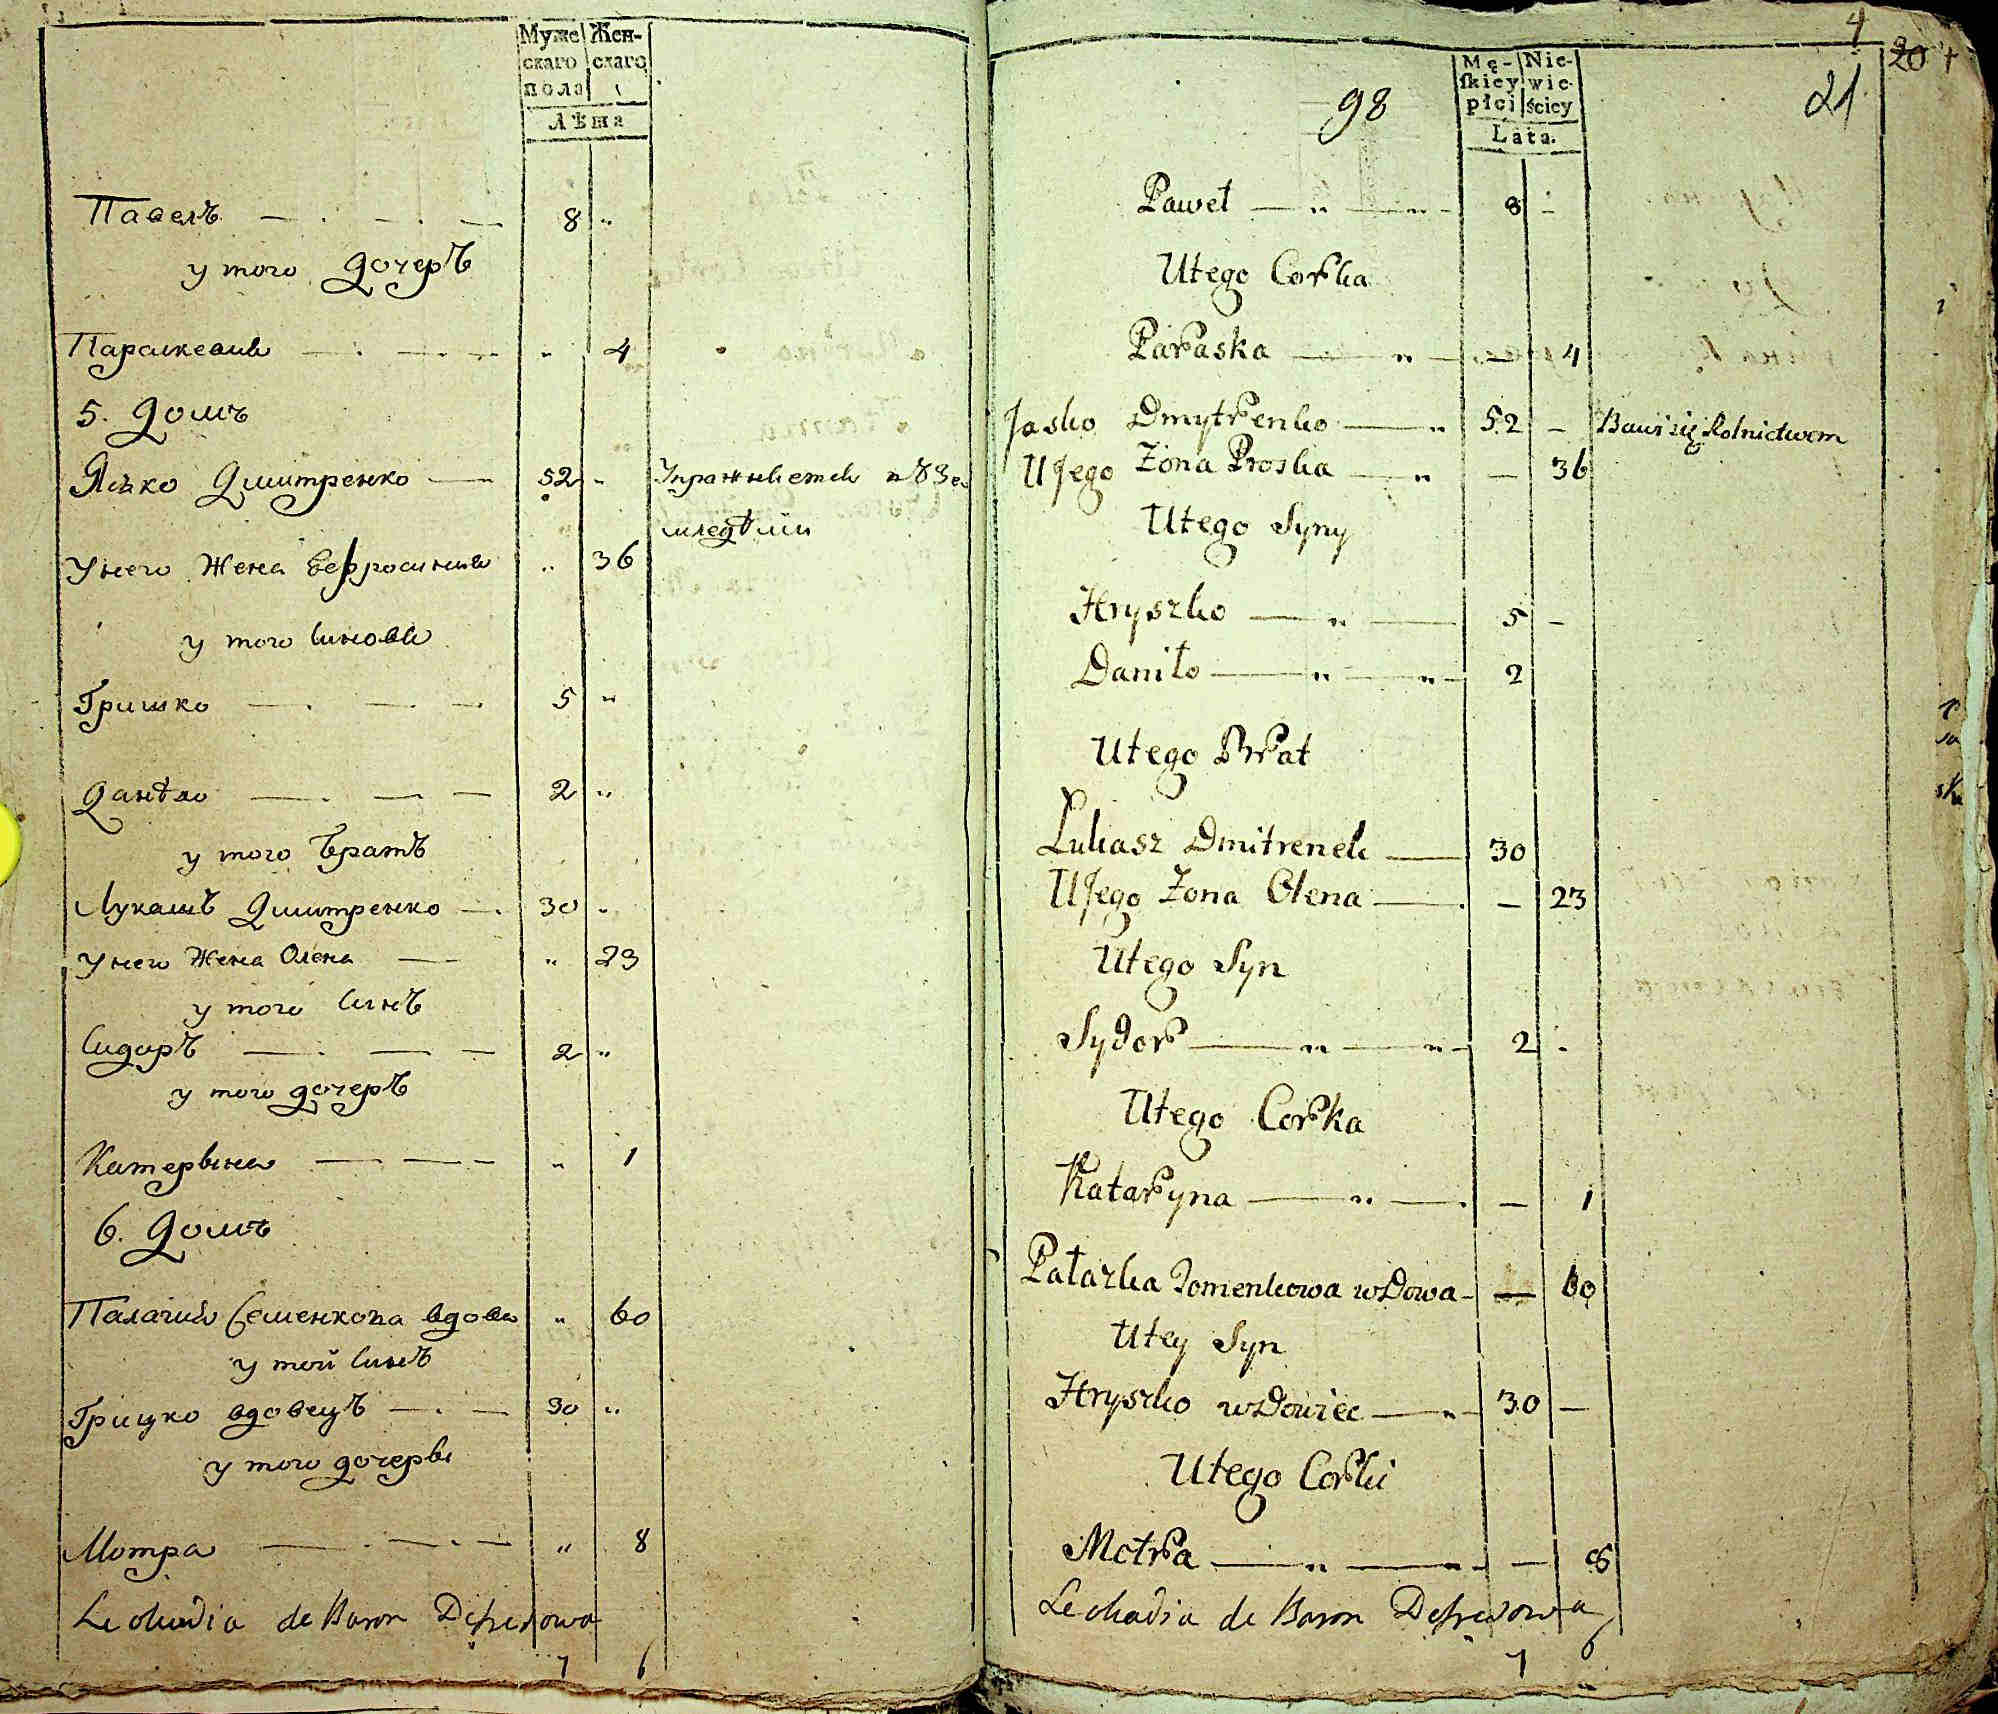 Муже Жен-
скаго скаго
пола
Лѣта
Павелъ 8 "
у того дочерь
Параскевия " 4
5. Домъ
Яско Дмитренко 52 " Упражняется въ Зе
мледѣлии
У него Жена Евфросиния " 36
у того синови
Гришко 5 "
Данѣло 2 "
у того Братъ
Лукашъ Дмитренко 30 "
У него Жена Олена " 23
у того синъ
Сидоръ 2 "
у того дочеръ
Катерына " 1
6. Домъ
Палагия Семенкова вдова " 60
у той синъ
Грицко вдовецъ 30 "
у того дочеры
Мотра " 8
Leokadia de Baron
7 6
4
20
21
98
Mę- Nie-
ſkiey wie-
płci ściey
Lata.
Paweł 8 -
Utego Corka
Paraska — 4
Jasko Dmytrenko 52 - Bawi się Rolnictwem
UJego Zona Proska — 36
Utego Syny
Hryszko 5 -
Daniło 2
Utego Brat
Lukasz Dmitrenek 30
UJego Zona Olena — 23
Utego Syn
Sydor 2 -
Utego Corka
Katarzyna — 1
Pałazka wdowa — 60
Utey Syn
Hryszko wdowiec 30 —
Utego Corki
Motra — 8
Leokadia de Baron
7 6